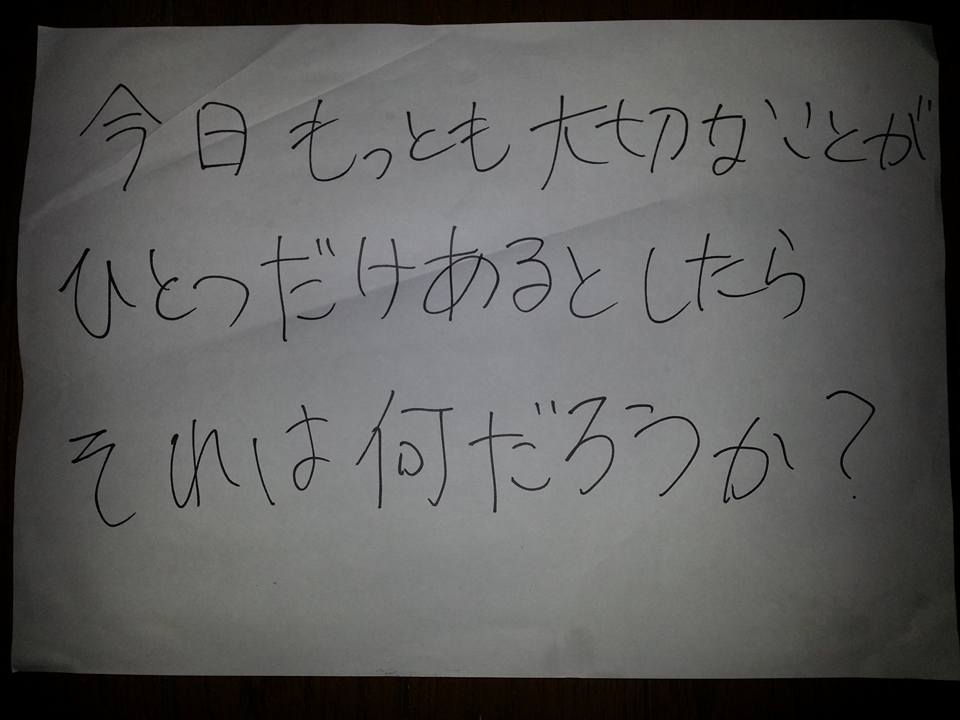 今日もっとも大切なことが
ひとつだけあるとしたら
それは何だろうか?